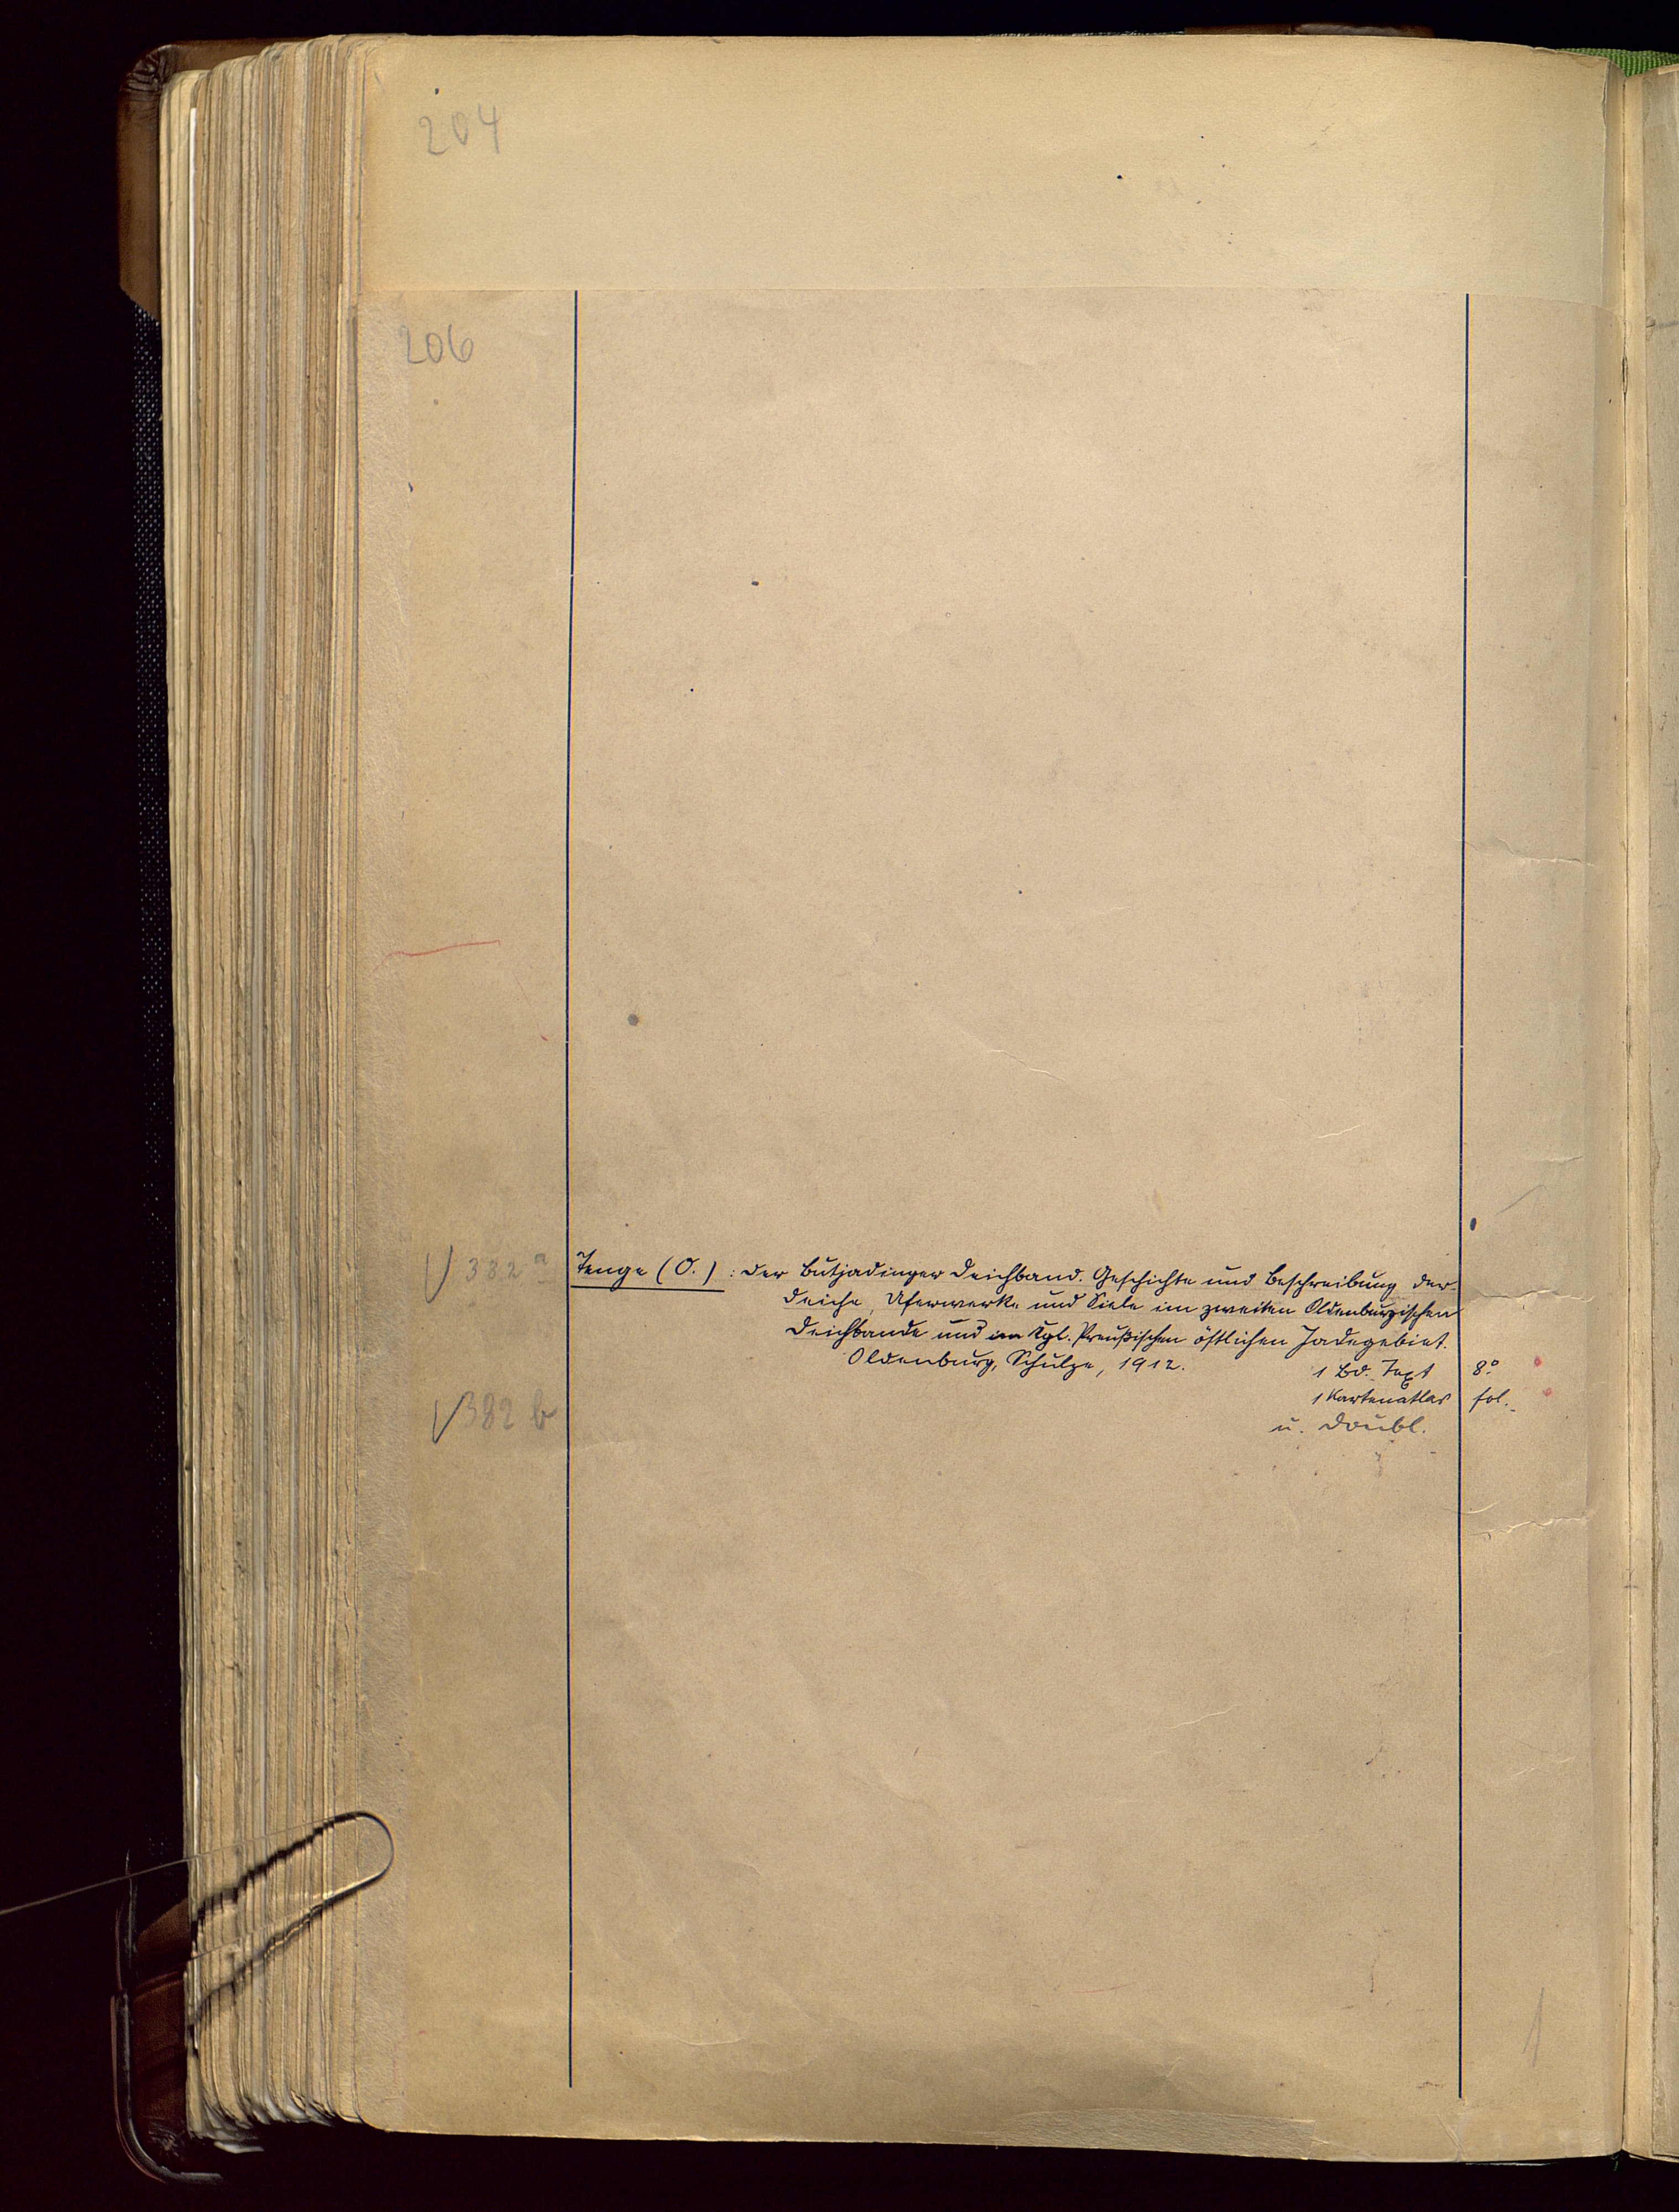 204
206
382 a Tenge (O.): Der Butjadinger Deichband. Geschichte und Beschreibung der
Deiche, Uferwerke und Siele im zweiten Oldenburgischen
Deichbande und im Kgl. Preußischen östlichen Jadegebiet.
Oldenburg, Schulze, 1912. 1 Bd. Text 8°
1 Kartenatlas fol.
382 b u. Doubl.